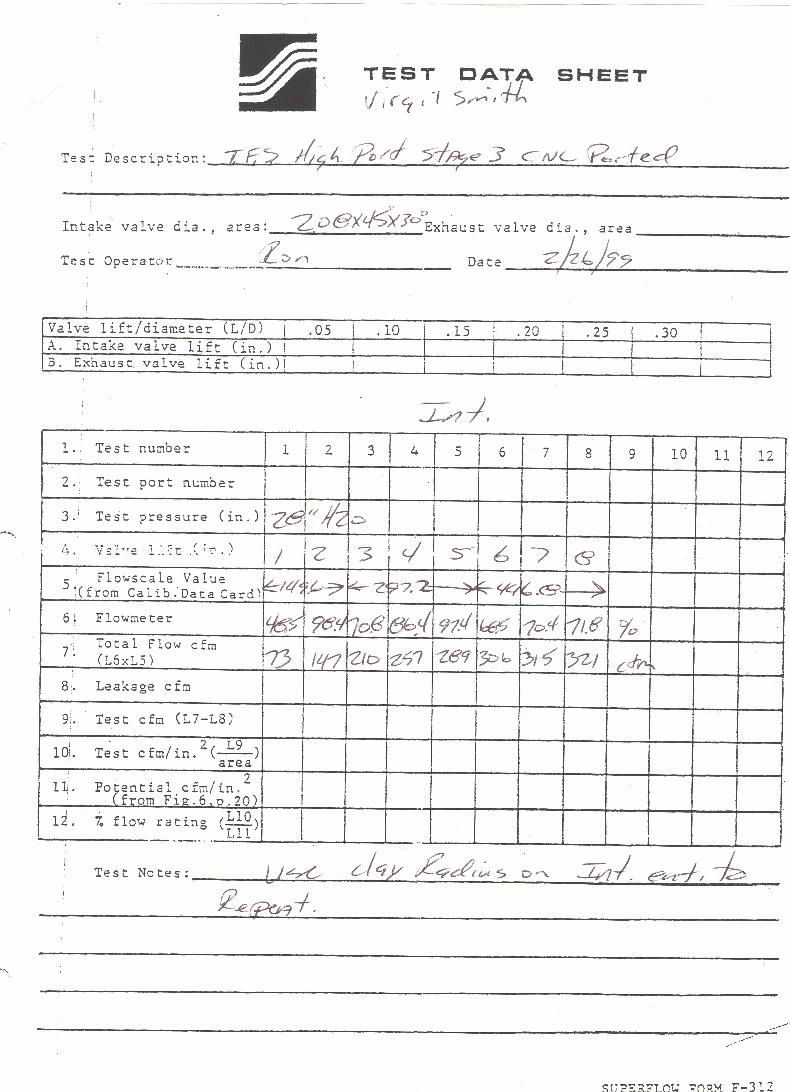 TEST DATA SHEET
Virgil Smith
Test Description: T.F.S High Port Stage 3 CNC Ported
Intake valve dia., area: 208X45X30° Exhaust valve dia., area
Test Operator Ron Date 2/26/99
Valve lift/diameter (L/D) .05 .10 .15 .20 .25 .30
A. Intake valve lift (in.)
B. Exhaust valve lift (in.)
Int.
1. Test number 1 2 3 4 5 6 7 8 9 10 11 12
2. Test port number
3. Test pressure (in.) 28" H20
4. Valve lift (in.) 1 2 3 4 5 6 7 8
5. Flowscale Value
(from Calib. Data Card) ←149.6→ ←297.2→ ←446.8→
6. Flowmeter 48.5 98.4 70.8 86.4 97.4 68.5 70.4 71.8 %
7. Total Flow cfm
(L6xL5) 73 147 210 257 289 306 315 321 cfm
8. Leakage cfm
9. Test cfm (L7-L8)
10. Test cfm/in.² (L9/area)
11. Potential cfm/in.²
(from Fig.6,p.20)
12. % flow rating (L10/L11)
Test Notes: Use clay Radius on Int. ent. to
Repeat.
SUPERFLOW FORM F-312